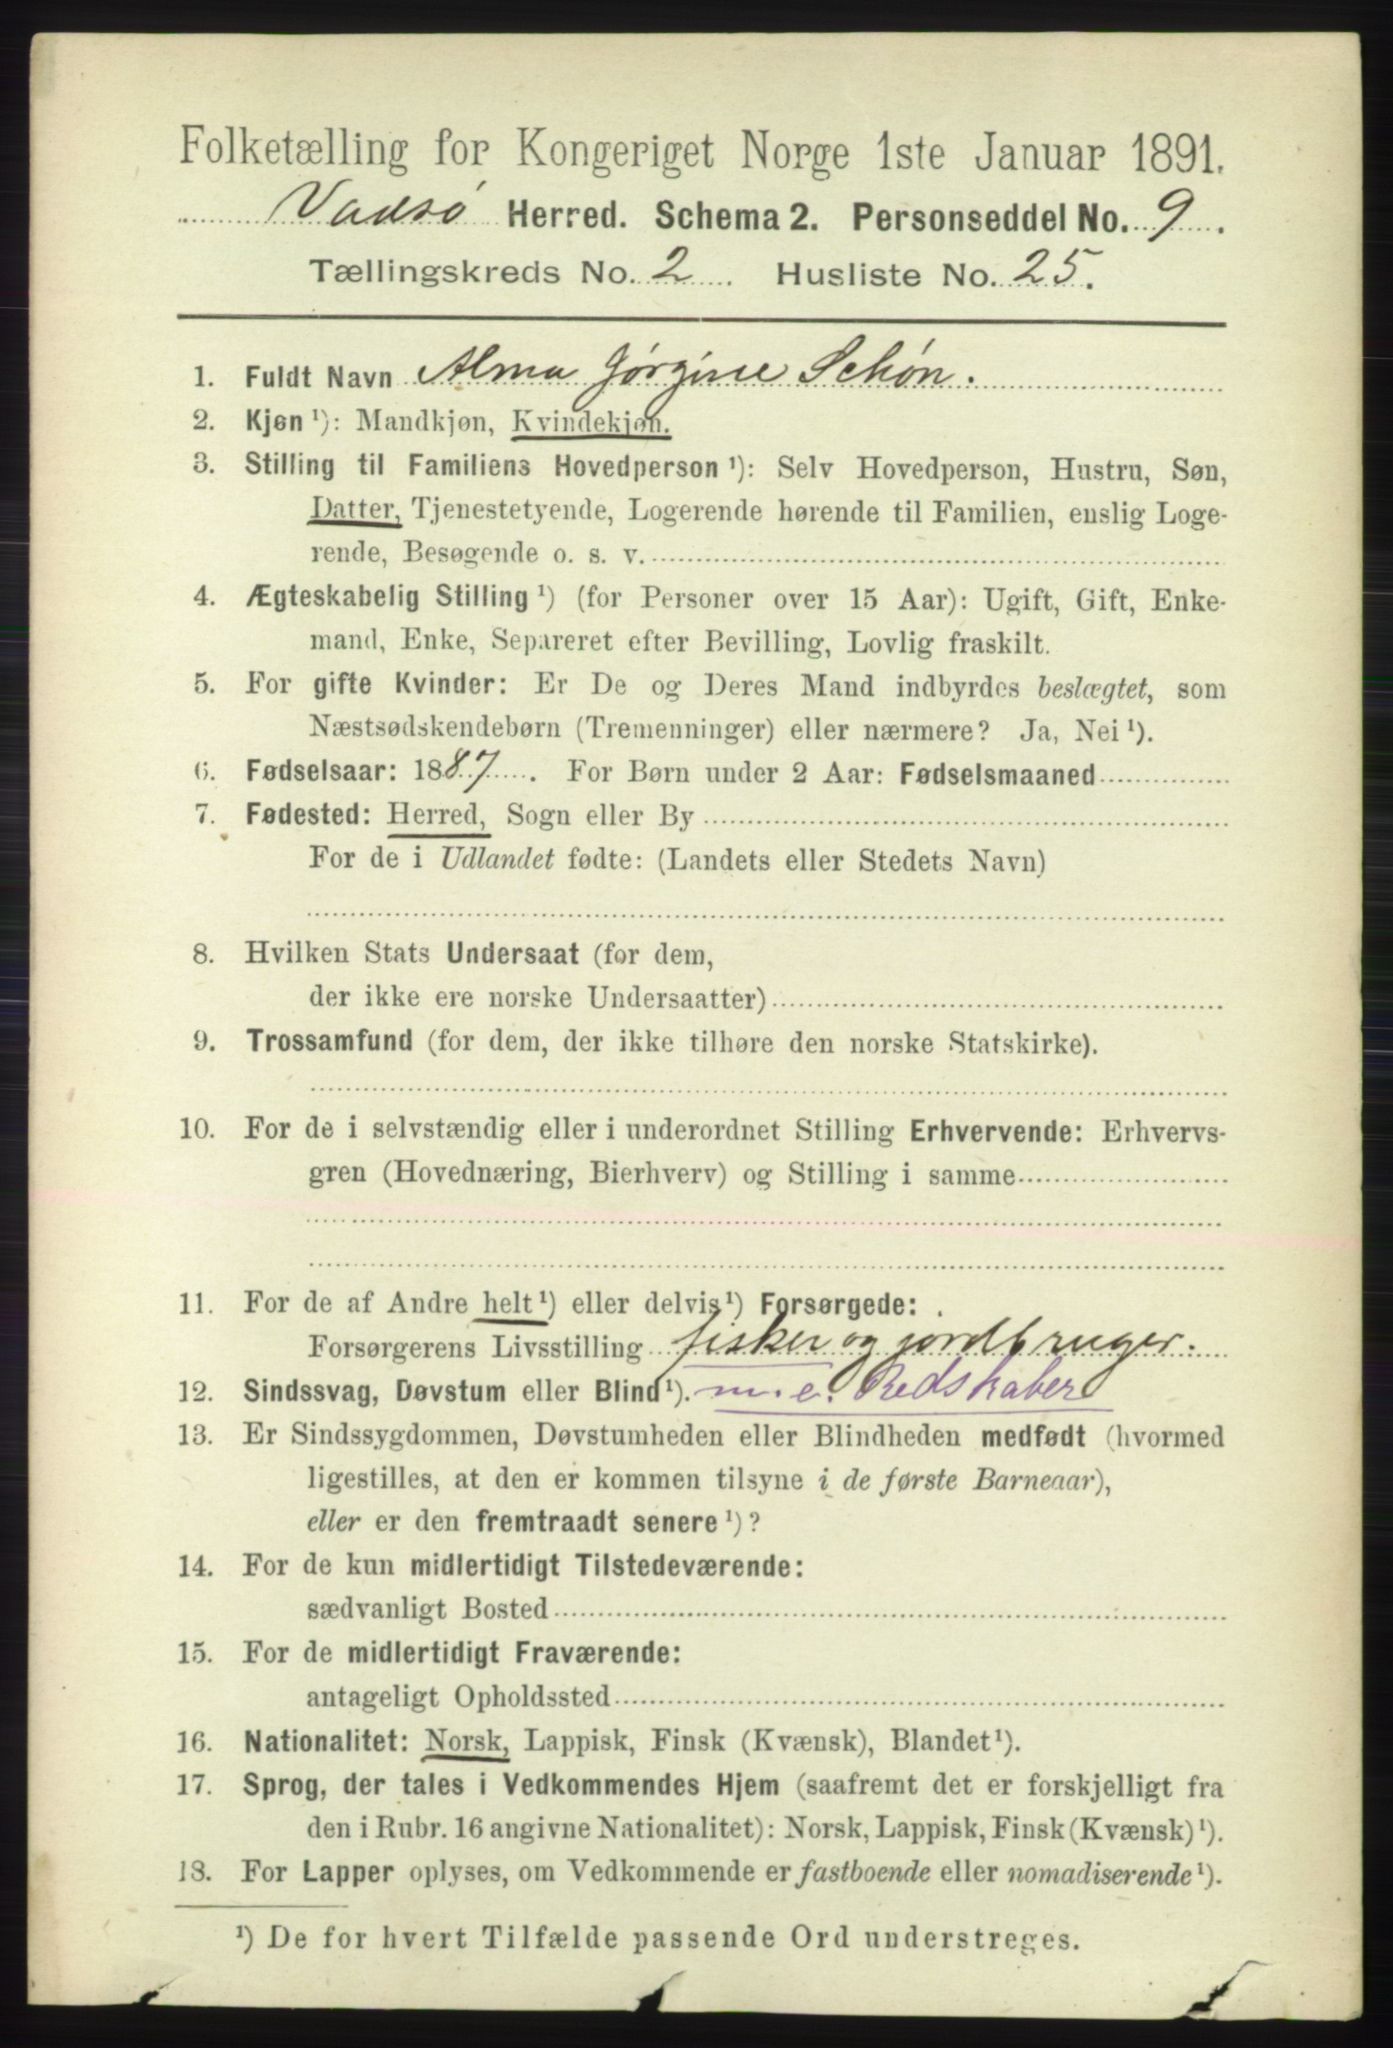 Folketælling for Kongeriget Norge 1ste Januar 1891.
Vadsø Herred. Schema 2. Personseddel No. 9.
Tællingskreds No. 2. Husliste No. 25.
1. Fuldt Navn Alma Jørgine Schøn.
2. Kjøn¹): Mandkjøn, Kvindekjøn.
3. Stilling til Familiens Hovedperson¹): Selv Hovedperson, Hustru, Søn,
Datter, Tjenestetyende, Logerende hørende til Familien, enslig Loge-
rende, Besøgende o. s. v.
4. Ægteskabelig Stilling¹) (for Personer over 15 Aar): Ugift, Gift, Enke-
mand, Enke, Separeret efter Bevilling, Lovlig fraskilt.
5. For gifte Kvinder: Er De og Deres Mand indbyrdes beslægtet, som
Næstsødskendebørn (Tremenninger) eller nærmere? Ja, Nei¹).
6. Fødselsaar: 1887. For Børn under 2 Aar: Fødselsmaaned
7. Fødested: Herred, Sogn eller By
For de i Udlandet fødte: (Landets eller Stedets Navn)
8. Hvilken Stats Undersaat (for dem,
der ikke ere norske Undersaatter)
9. Trossamfund (for dem, der ikke tilhøre den norske Statskirke).
10. For de i selvstændig eller i underordnet Stilling Erhvervende: Erhvervs-
gren (Hovednæring, Bierhverv) og Stilling i samme
11. For de af Andre helt¹) eller delvis¹) Forsørgede:
Forsørgerens Livsstilling fisker og jordbruger.
12. Sindssvag, Døvstum eller Blind¹). m. e. Redskaber
13. Er Sindssygdommen, Døvstumheden eller Blindheden medfødt (hvormed
ligestilles, at den er kommen tilsyne i de første Barneaar),
eller er den fremtraadt senere¹)?
14. For de kun midlertidigt Tilstedeværende:
sædvanligt Bosted
15. For de midlertidigt Fraværende:
antageligt Opholdssted
16. Nationalitet: Norsk, Lappisk, Finsk (Kvænsk), Blandet¹).
17. Sprog, der tales i Vedkommendes Hjem (saafremt det er forskjelligt fra
den i Rubr. 16 angivne Nationalitet): Norsk, Lappisk, Finsk (Kvænsk)¹).
18. For Lapper oplyses, om Vedkommende er fastboende eller nomadiserende¹).
¹) De for hvert Tilfælde passende Ord understreges.